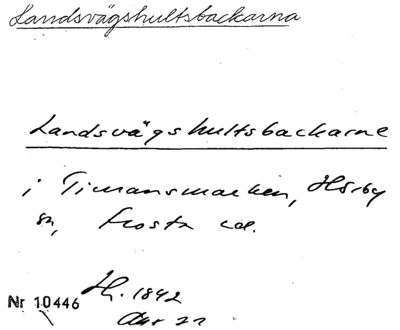 Landsvägshultsbackarna
Landsvägshultsbackarne
i Timansmarken, Hörby
sn, Frosta
Nr 10446 H. 1842